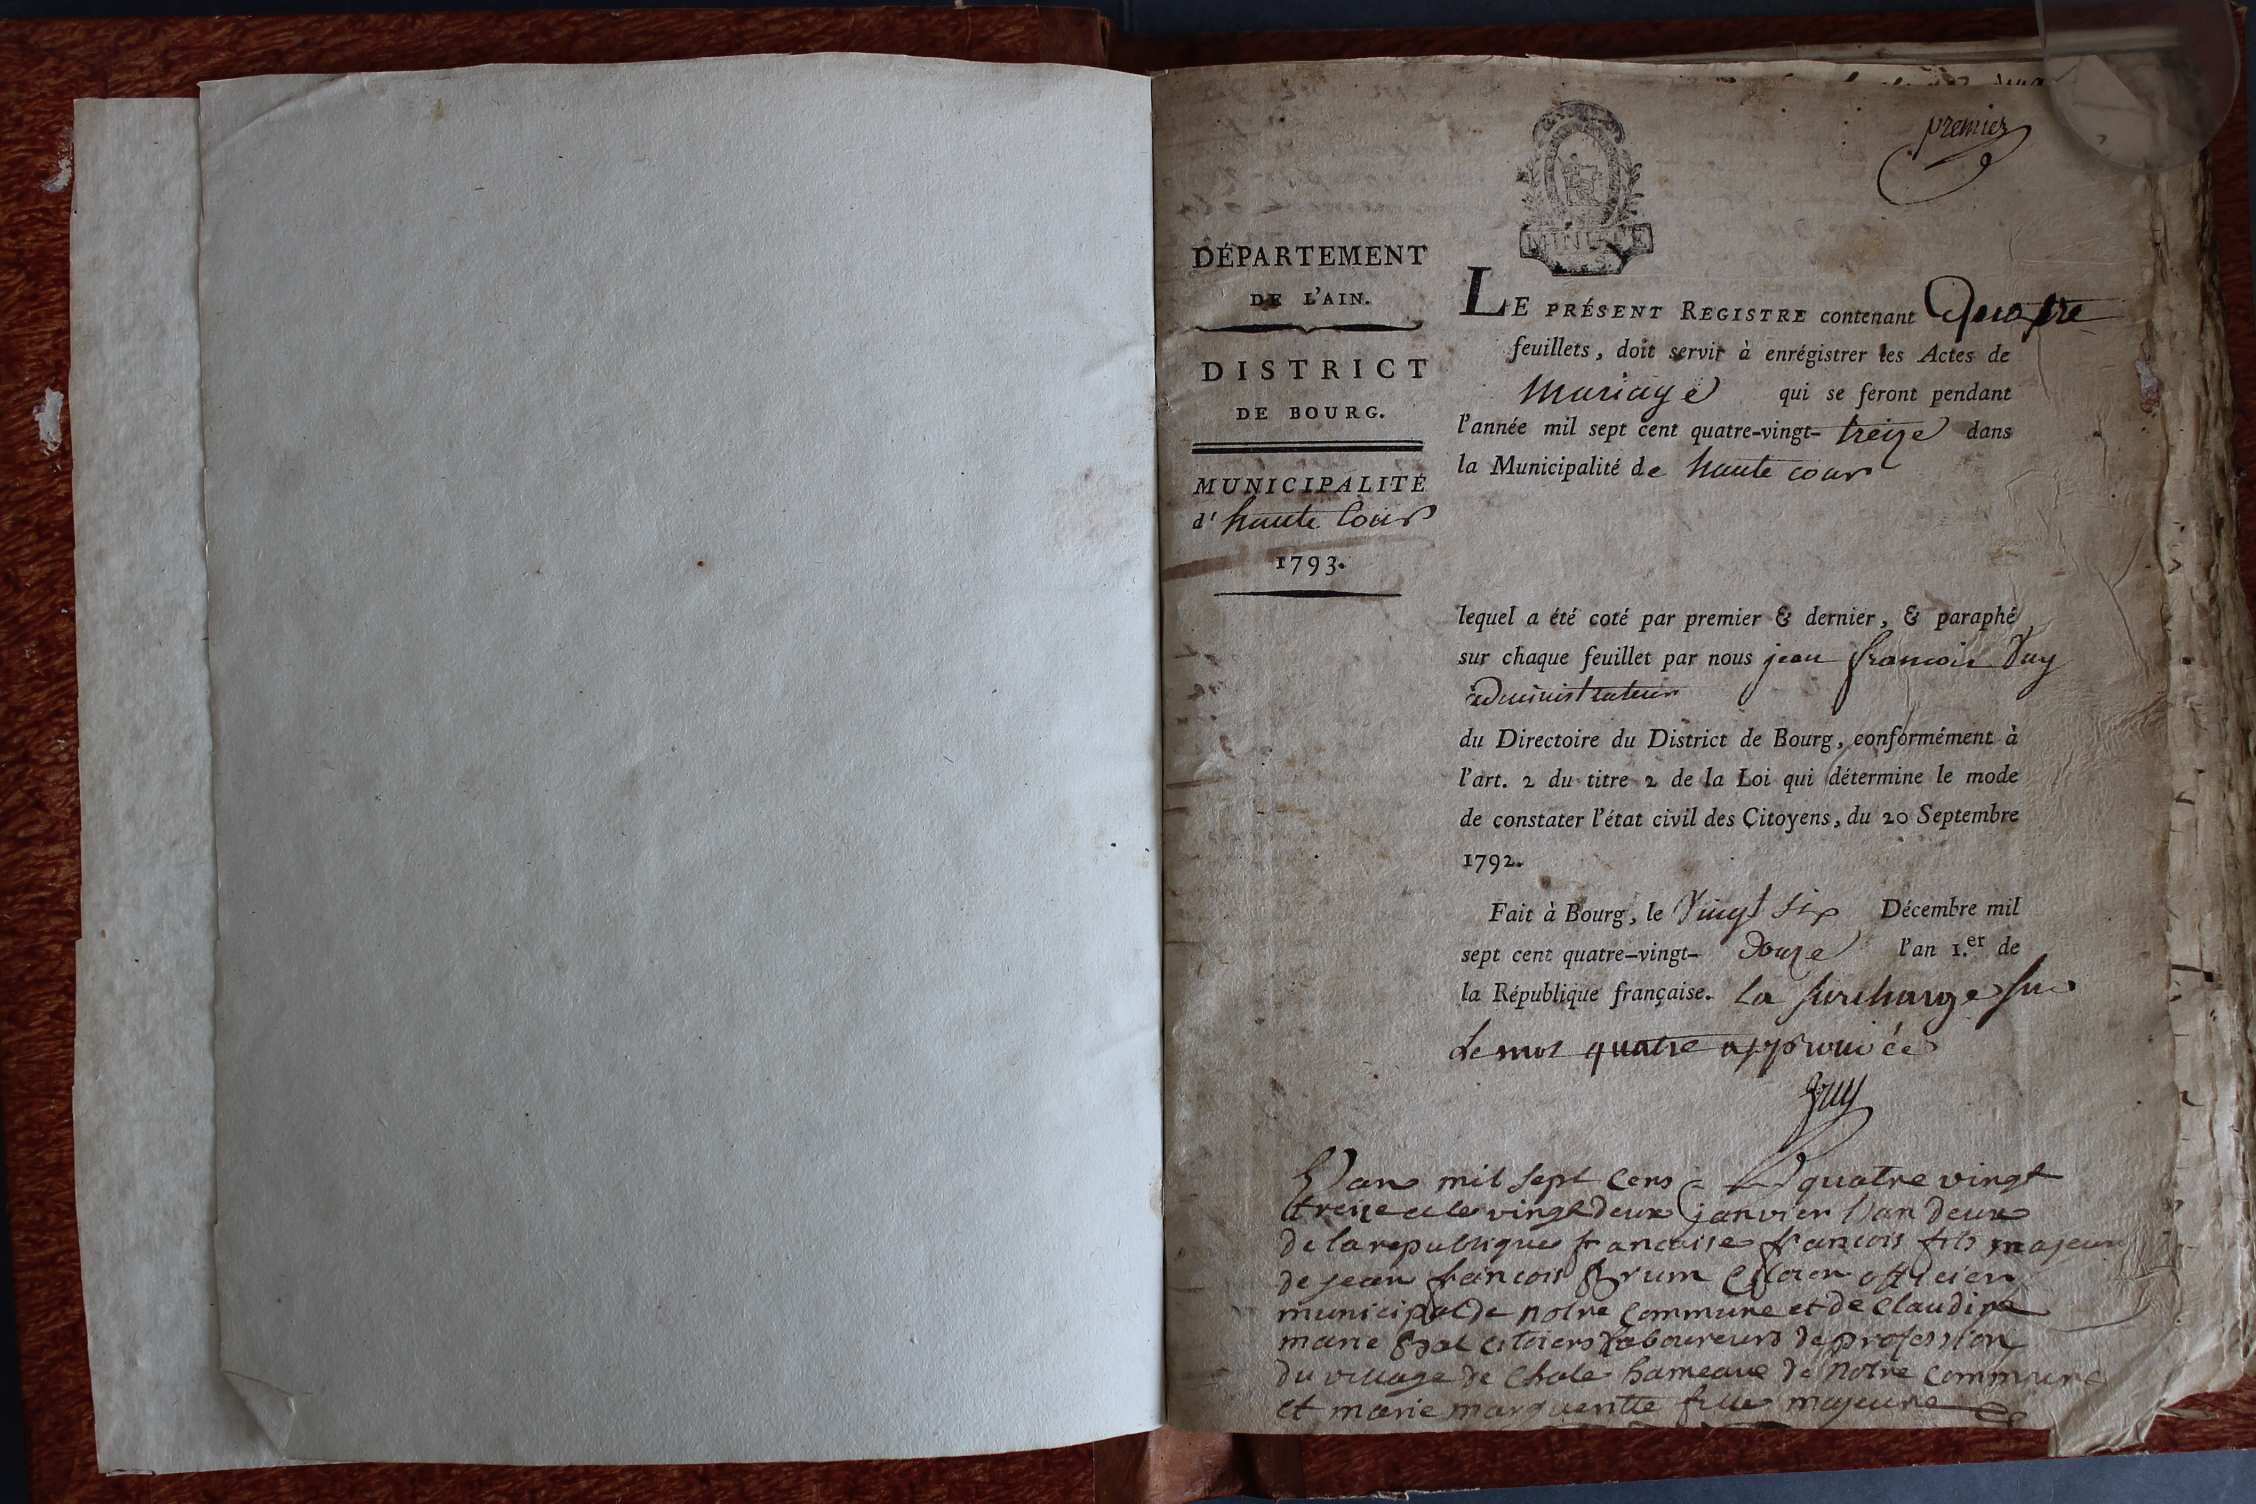 premier
MINUTE
DÉPARTEMENT
DE L'AIN.
DISTRICT
DE BOURG.
MUNICIPALITÉ
d' haute Cour
1793.
LE PRÉSENT REGISTRE contenant Quatre
feuillets, doit servir à enrégistrer les Actes de
Mariage qui se feront pendant
l'année mil sept cent quatre-vingt- treize dans
la Municipalité de haute cour
lequel a été coté par premier & dernier, & paraphé
sur chaque feuillet par nous jean francois
administrateur
du Directoire du District de Bourg, conformément à
l'art. 2 du titre 2 de la Loi qui détermine le mode
de constater l'état civil des Citoyens, du 20 Septembre
1792.
Fait à Bourg, le Vingt six Décembre mil
sept cent quatre-vingt- douze l'an 1.er de
la République française. la surcharge sur
Le mot quatre approuvée
L'an mil sept cens quatre vingt
treize et le vingt deux janvier l'an deux
de la republique francaise francois fils majeur
de jean francois Brum Citoien officier
municipal de notre commune et de Claudine
marie citoiens laboureurs de profession
du village de Chale hameaux de notre commune
et marie marguerite fille majeure